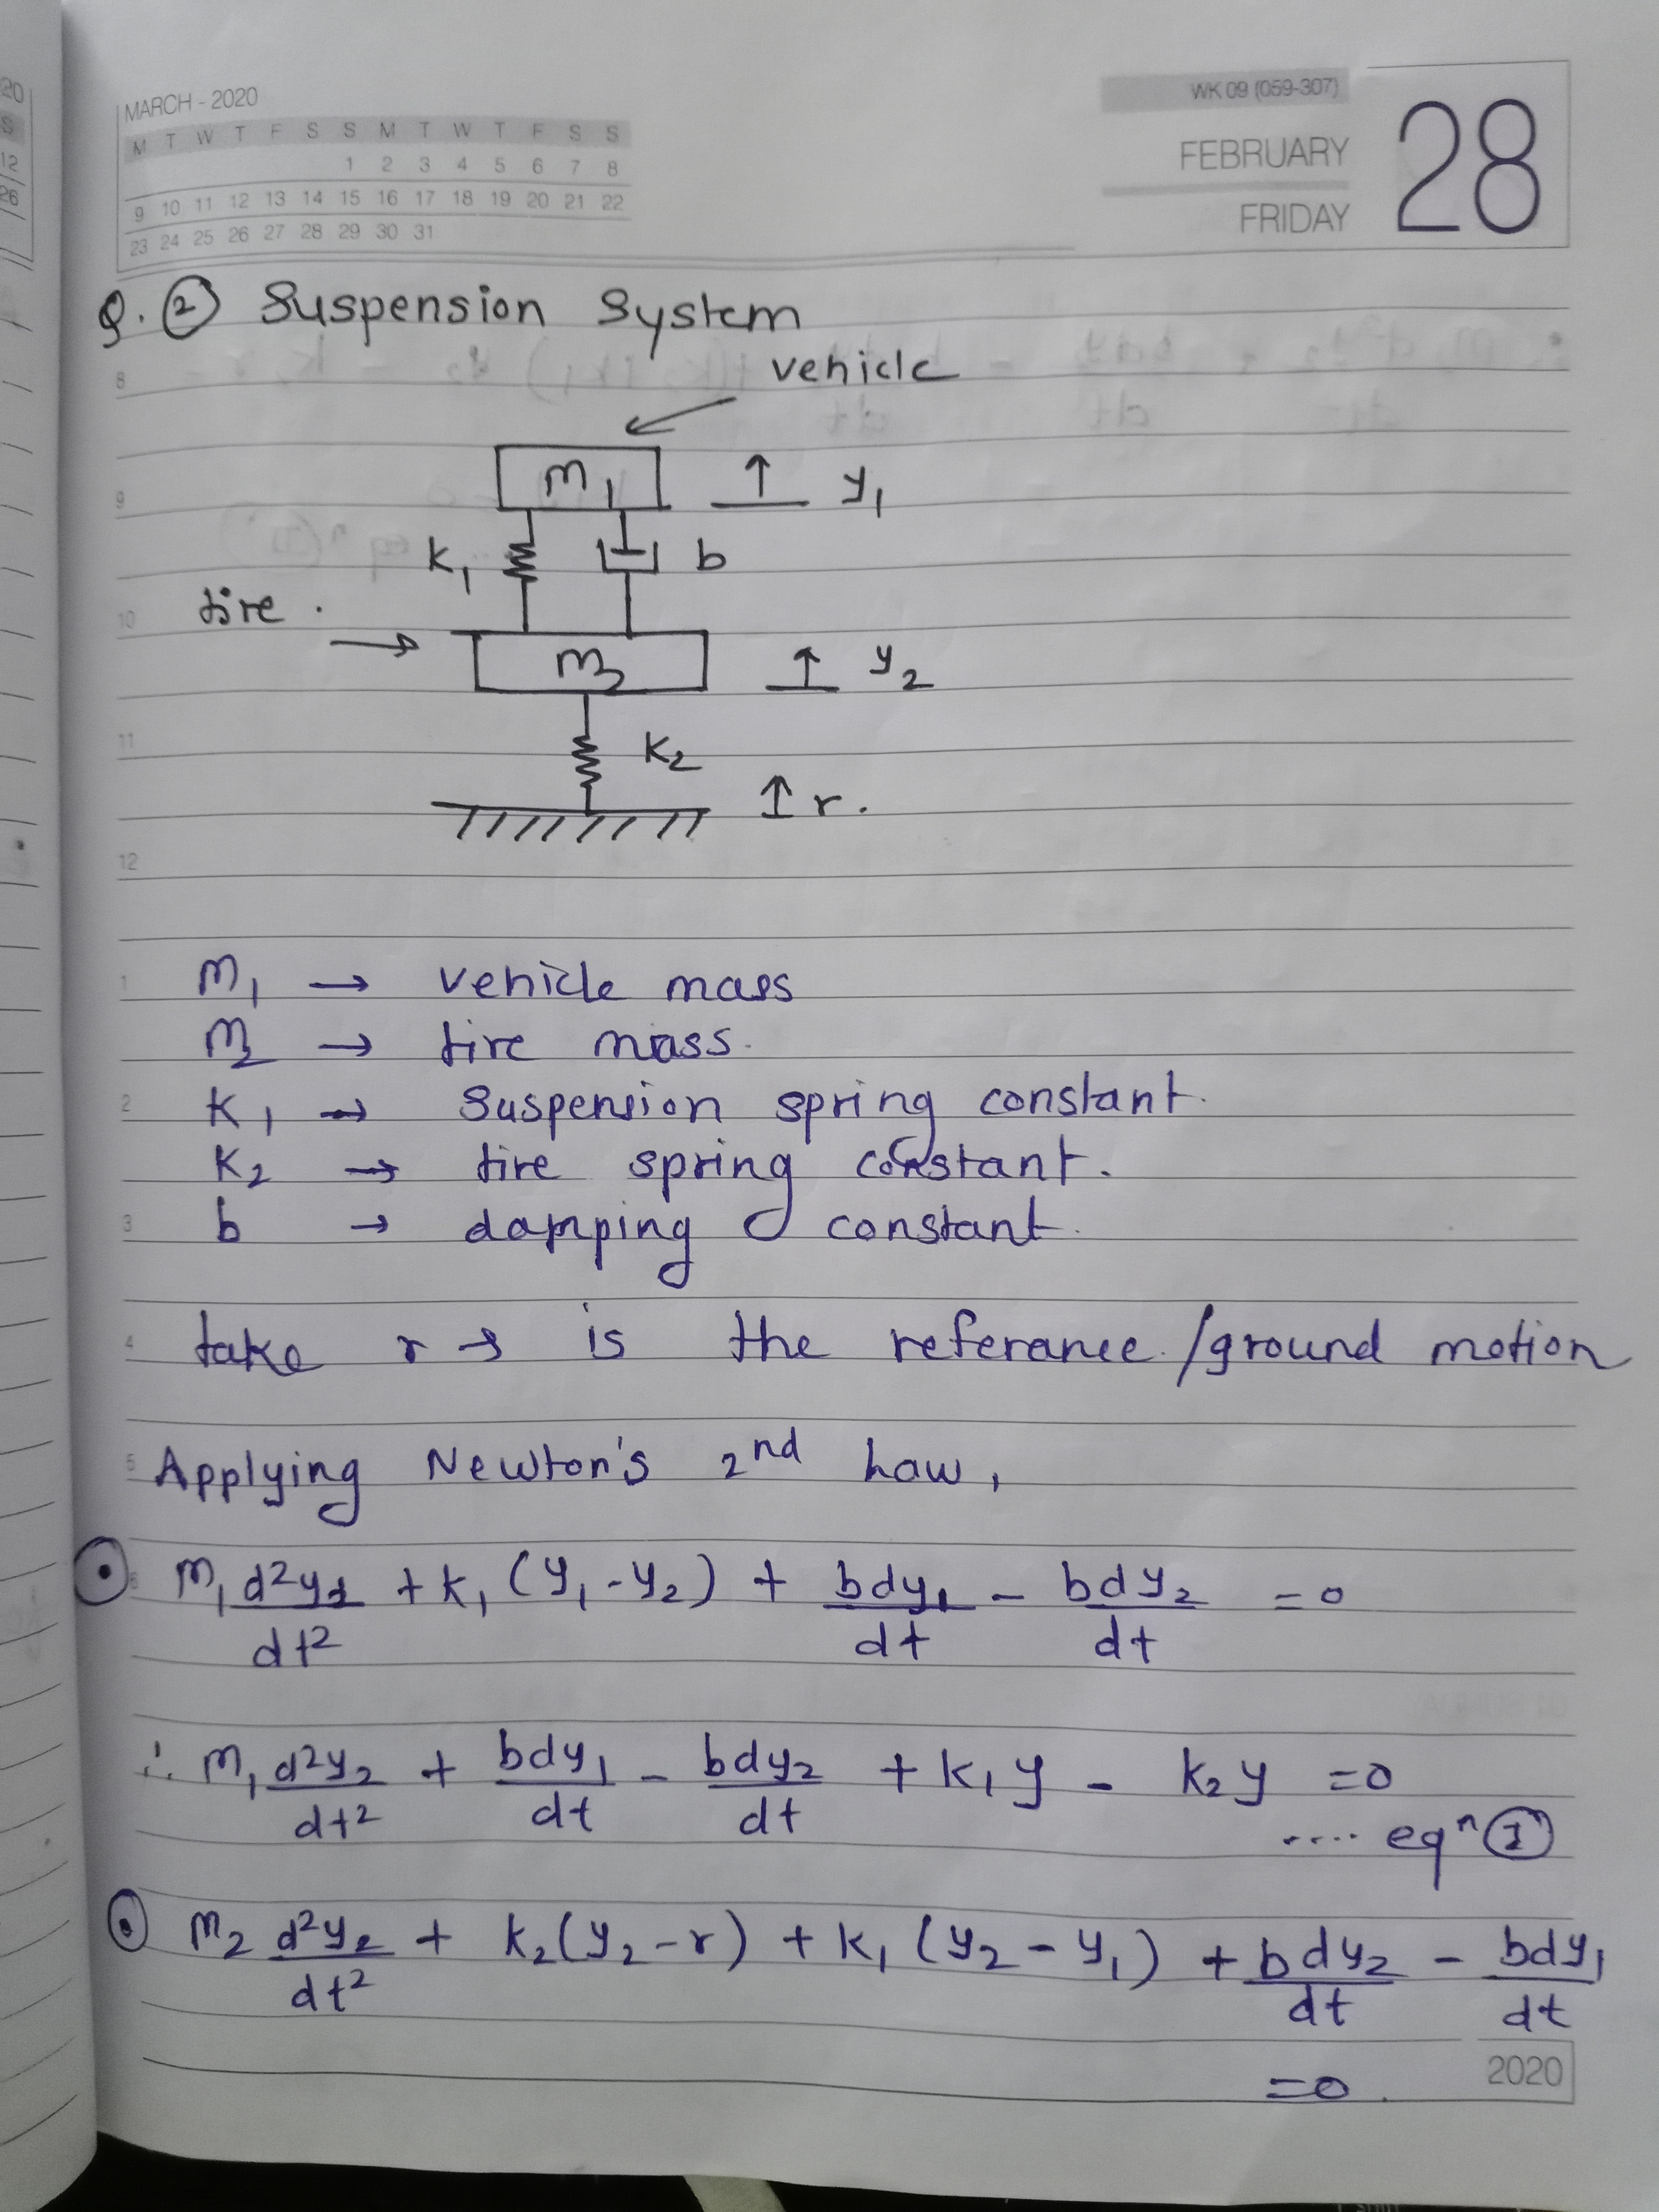 MARCH - 2020
M T W T F S S M T W T F S S
1 2 3 4 5 6 7 8
9 10 11 12 13 14 15 16 17 18 19 20 21 22
23 24 25 26 27 28 29 30 31
WK 09 (059-307)
FEBRUARY
FRIDAY
28
20
S
12
26
Q. ② Suspension System
vehicle
8
m₁ ↑ y₁
9
k₁ b
tire .
10
→ m₂ ↑ y₂
11
k₂
↑ r.
12
1 m₁ → vehicle mass
m₂ → tire mass.
2 k₁ → Suspension spring constant.
k₂ → tire spring constant.
3 b → damping constant.
4 take r → is the referance/ground motion
5 Applying Newton's 2nd Law,
6 m₁ d²y₁/dt² + k₁ (y₁ - y₂) + bdy₁/dt - bdy₂/dt = 0
∴ m₁ d²y₂/dt² + bdy₁/dt - bdy₂/dt + k₁y - k₂y = 0
.... eqⁿ ①
m₂ d²y₂/dt² + k₂(y₂ - r) + k₁ (y₂ - y₁) + b dy₂/dt - bdy₁/dt
= 0.
2020